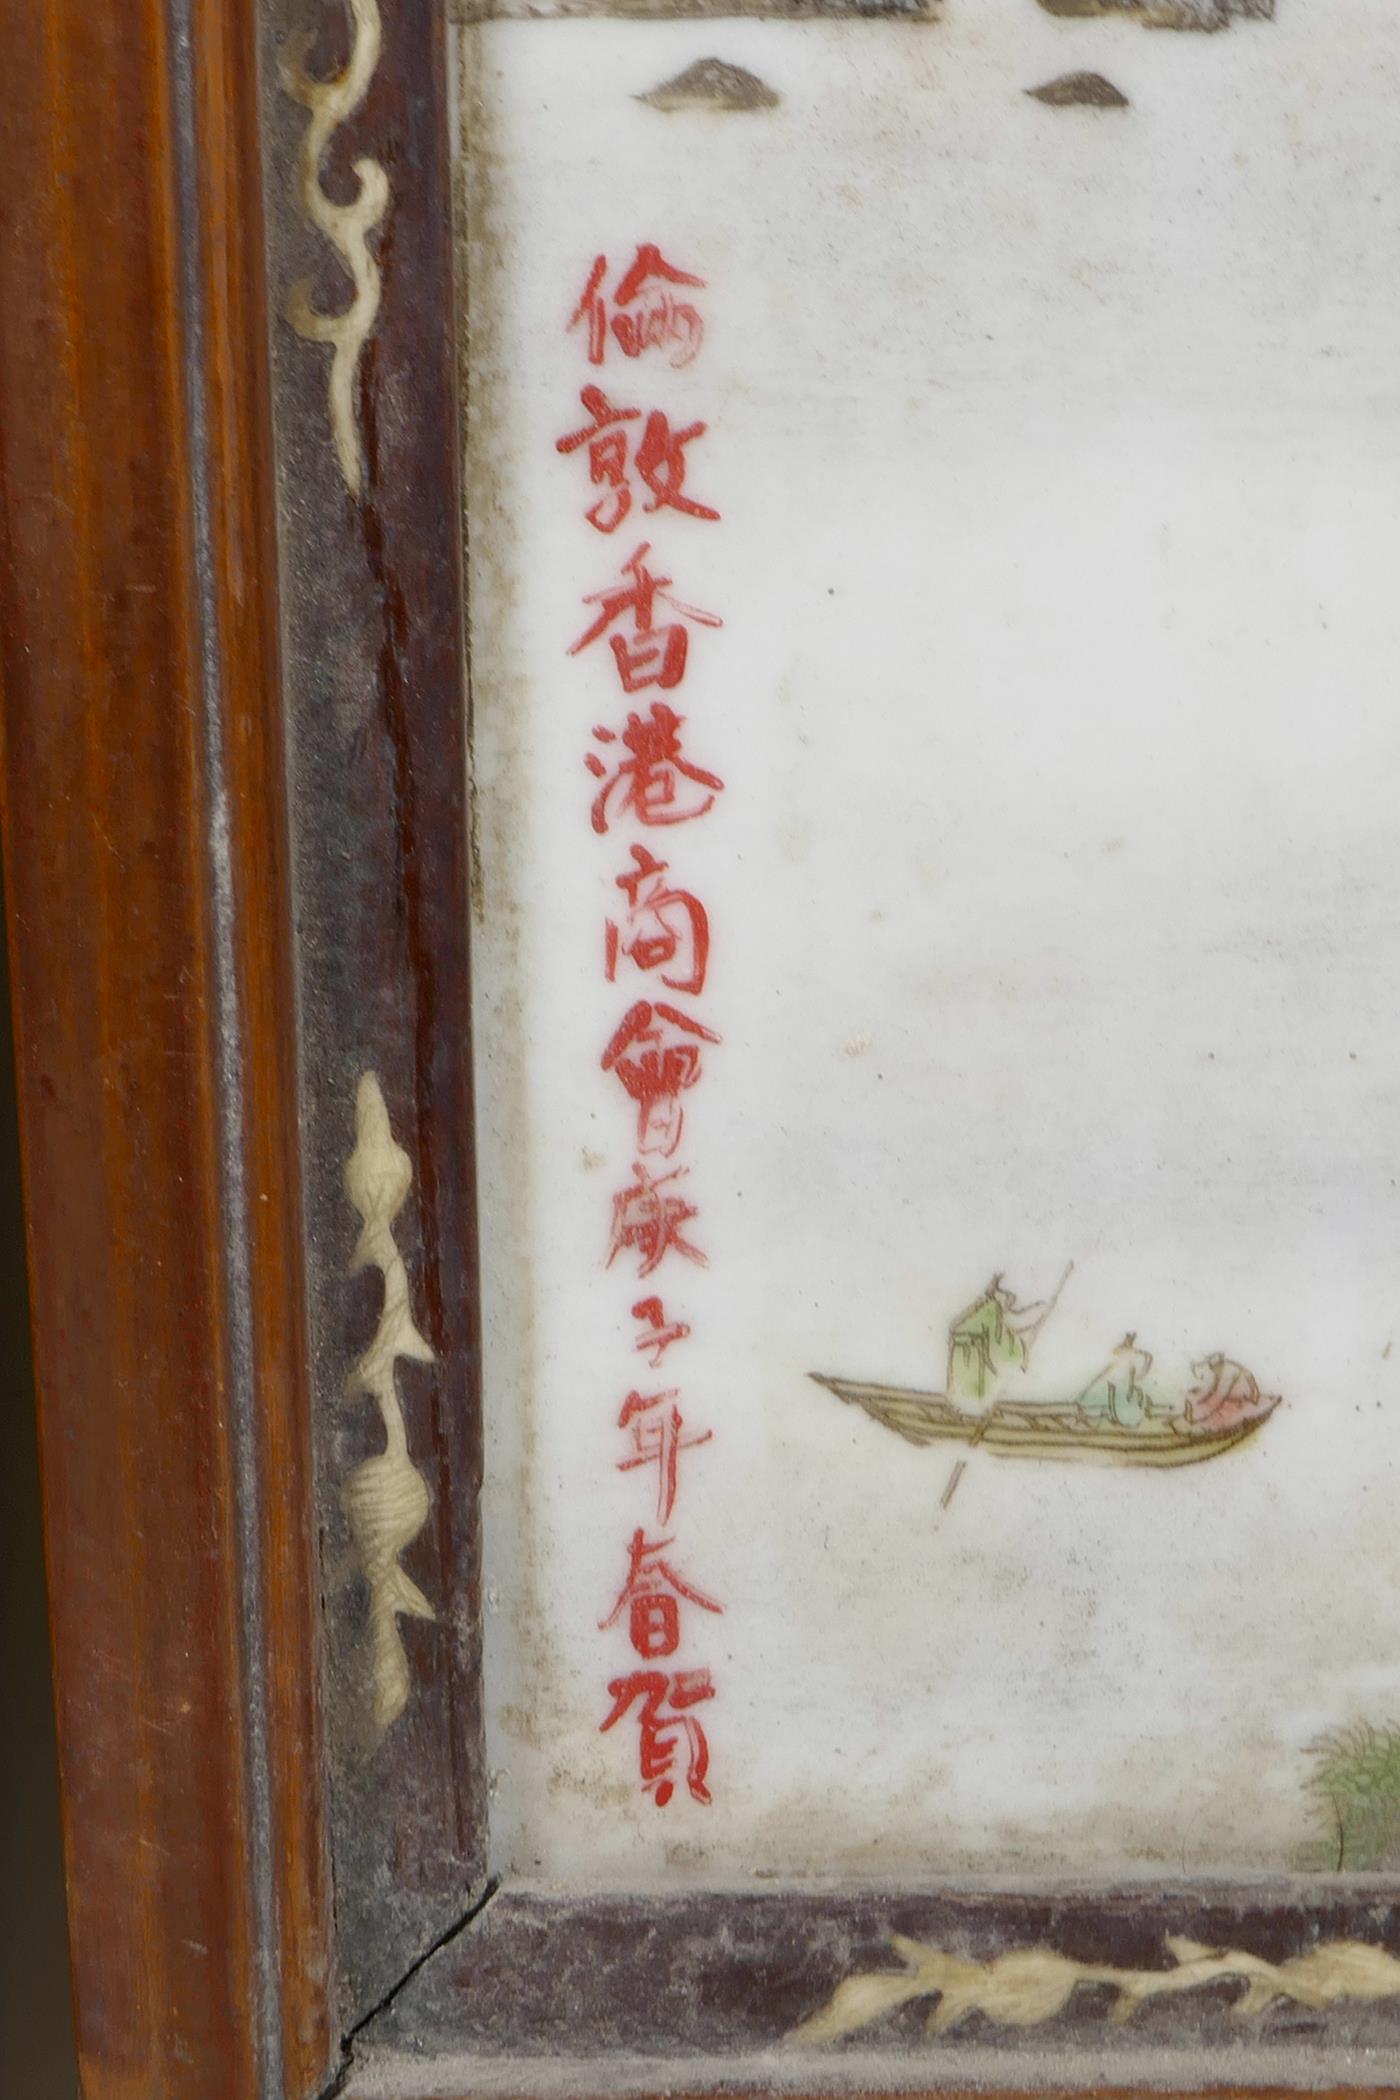 倫敦香港商會庚子年春賀